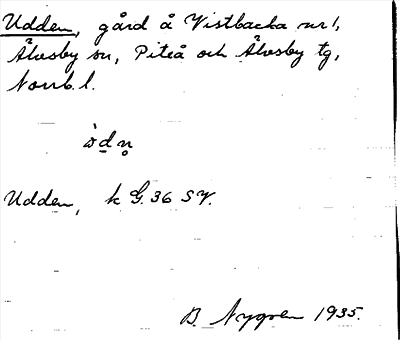 Udden, gård å Vistbacka nr 1,
Älvsby sn, Piteå och Älvsby tg,
Norrb. l.
òd̲n̥
Udden, k G. 36 SV.
B. Nygren 1935.